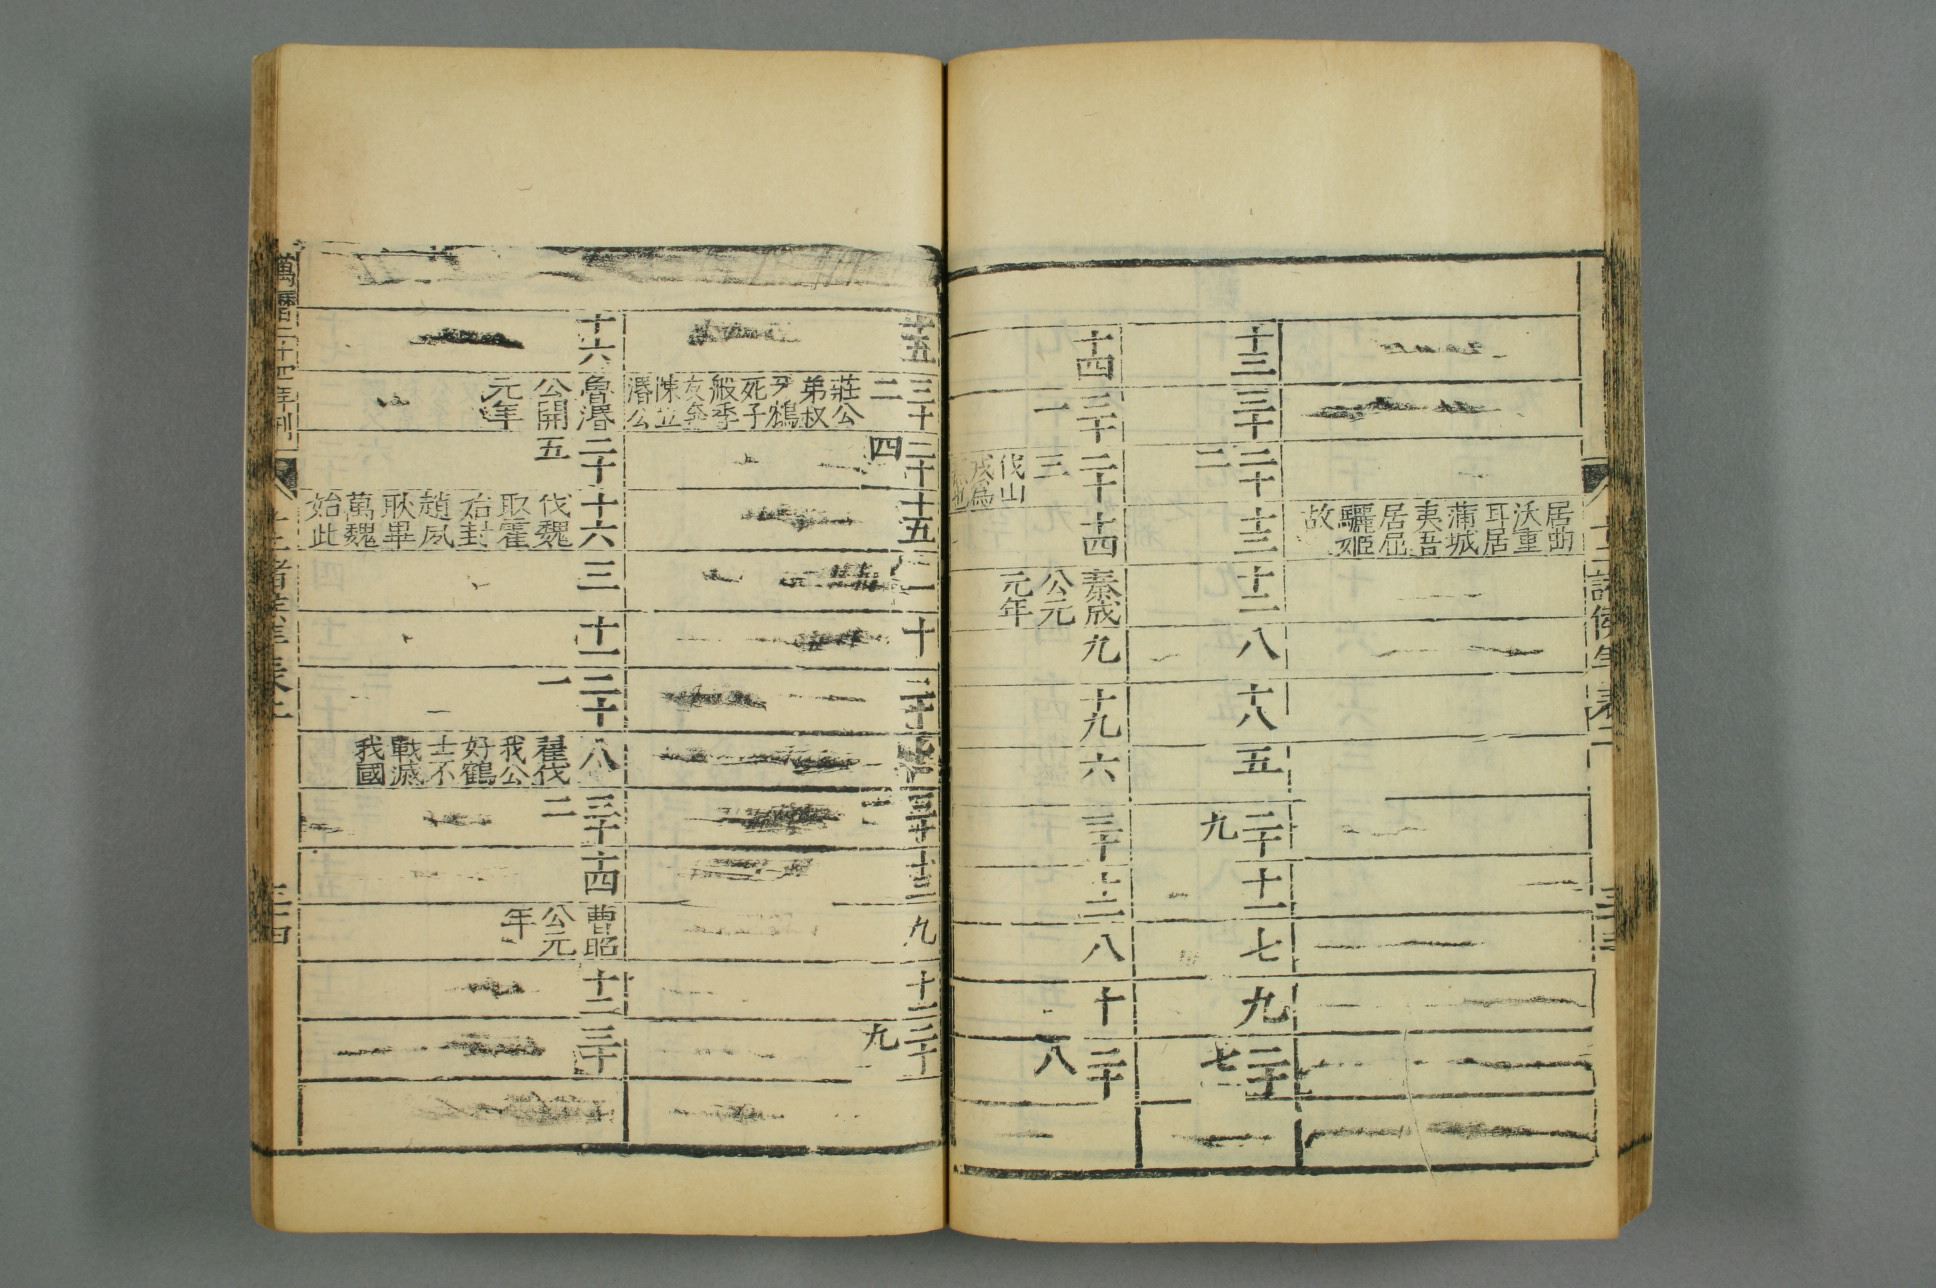 十二諸侯年表二
三十三
居曲
沃重
耳居
蒲城
夷吾
居屈
驪姬
故
十三
三十
二十
二
十三
十二
八
十八
五
二十
九
十一
七
九
二十
七
十四
三十
一
二十
三
伐山
戎爲
十四
秦成
公元
元年
九
十九
六
三十
十二
八
十
二十
八
十五
三十
二
莊公
弟叔
牙鴆
死子
般季
友奔
陳立
湣公
二十
四
十五
二
十
二十
七
三十
一
十三
九
十一
二十
九
十六
魯湣
公開
元年
二十
五
十六
伐魏
取霍
始封
趙夙
耿畢
萬魏
始此
三
十一
二十
一
八
翟伐
我公
好鶴
士不
戰滅
我國
三十
二
十四
曹昭
公元
年
十二
三十
萬曆二十四年刊
十二諸侯年表二
三十四